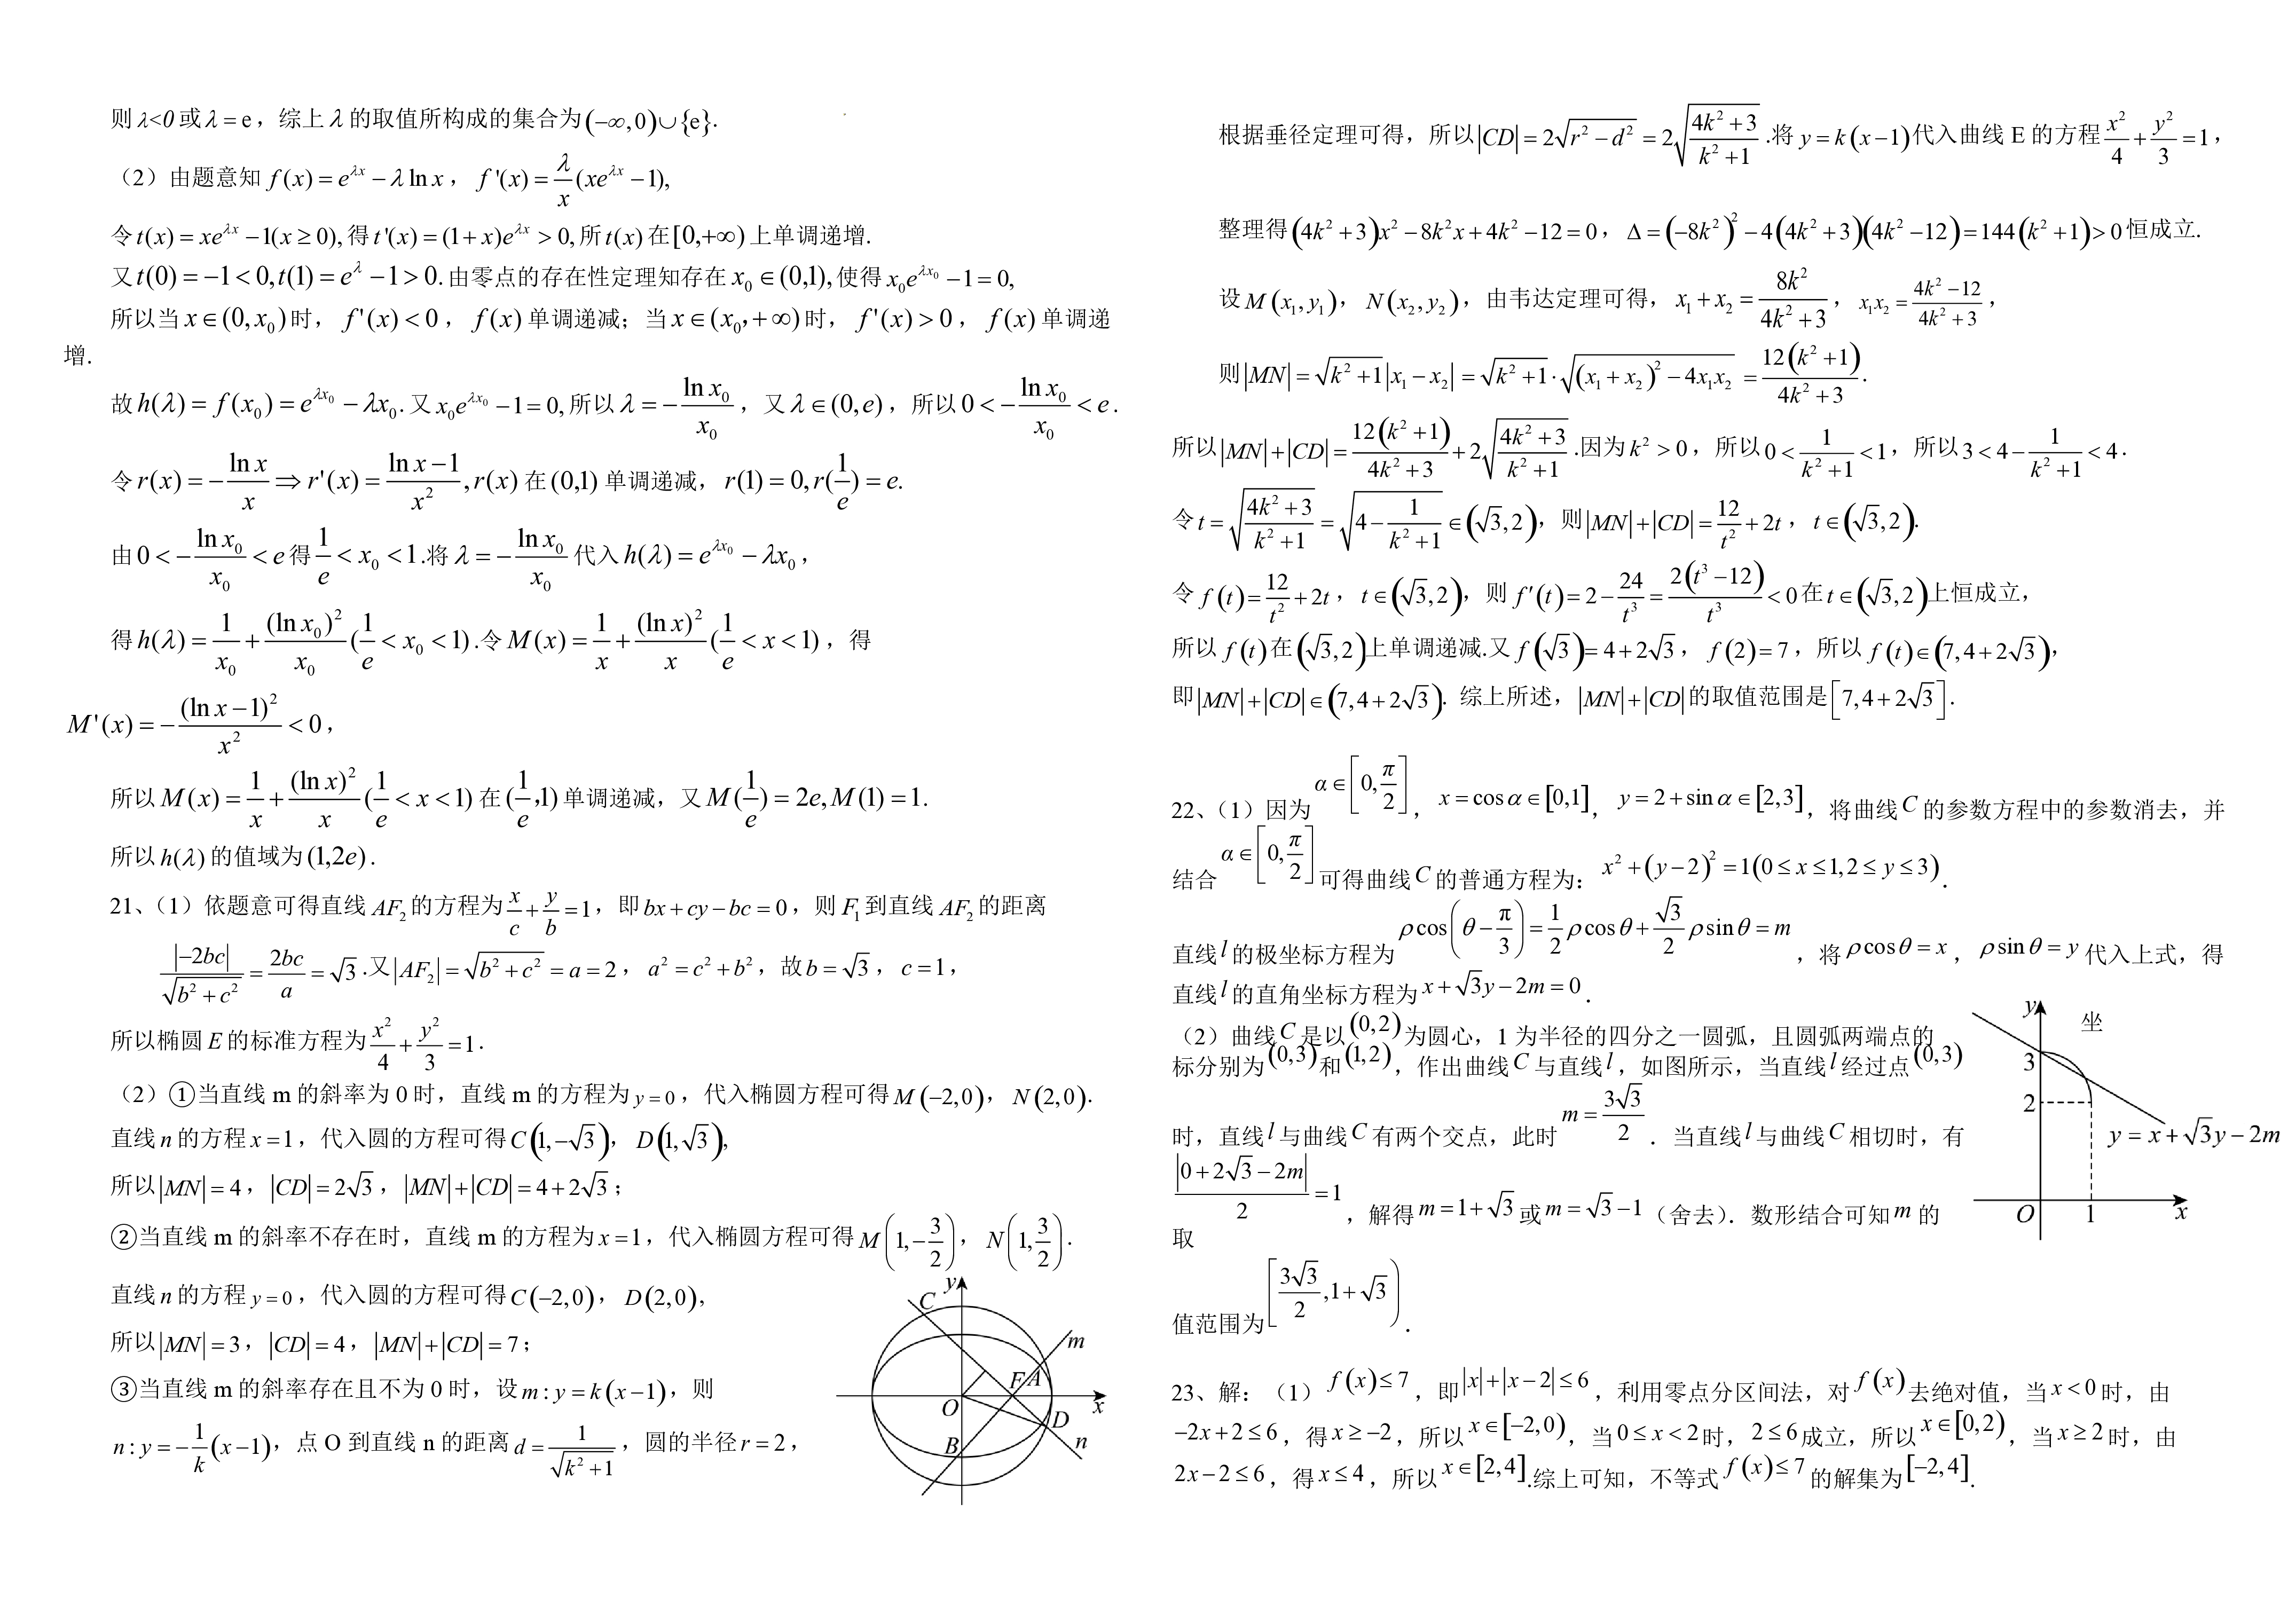 则λ<0或λ = e，综上λ的取值所构成的集合为(−∞,0)∪{e}.
（2）由题意知 f(x) = e^{λx} − λ ln x，f '(x) = \frac{λ}{x}(xe^{λx} − 1),
令t(x) = xe^{λx} − 1(x ≥ 0), 得t '(x) = (1 + x)e^{λx} > 0, 所t(x)在[0,+∞)上单调递增.
又t(0) = −1 < 0, t(1) = e^{λ} − 1 > 0. 由零点的存在性定理知存在x_0 ∈ (0,1), 使得x_0e^{λx_0} − 1 = 0,
所以当x ∈ (0, x_0)时，f '(x) < 0，f(x)单调递减；当x ∈ (x_0，+ ∞)时，f '(x) > 0，f(x)单调递
增.
故h(λ) = f(x_0) = e^{λx_0} − λx_0. 又x_0e^{λx_0} − 1 = 0, 所以λ = −\frac{ln x_0}{x_0}，又λ ∈ (0, e)，所以0 < −\frac{ln x_0}{x_0} < e.
令r(x) = −\frac{ln x}{x} ⇒ r '(x) = \frac{ln x − 1}{x^2}, r(x)在(0,1)单调递减，r(1) = 0, r(\frac{1}{e}) = e.
由0 < −\frac{ln x_0}{x_0} < e得\frac{1}{e} < x_0 < 1.将λ = −\frac{ln x_0}{x_0}代入h(λ) = e^{λx_0} − λx_0，
得h(λ) = \frac{1}{x_0} + \frac{(ln x_0)^2}{x_0}(\frac{1}{e} < x_0 < 1).令M(x) = \frac{1}{x} + \frac{(ln x)^2}{x}(\frac{1}{e} < x < 1)，得
M '(x) = −\frac{(ln x − 1)^2}{x^2} < 0，
所以M(x) = \frac{1}{x} + \frac{(ln x)^2}{x}(\frac{1}{e} < x < 1)在(\frac{1}{e}，1)单调递减，又M(\frac{1}{e}) = 2e, M(1) = 1.
所以h(λ)的值域为(1,2e).
21、（1）依题意可得直线AF_2的方程为\frac{x}{c} + \frac{y}{b} = 1，即bx + cy − bc = 0，则F_1到直线AF_2的距离
\frac{|−2bc|}{\sqrt{b^2 + c^2}} = \frac{2bc}{a} = \sqrt{3}.又|AF_2| = \sqrt{b^2 + c^2} = a = 2，a^2 = c^2 + b^2，故b = \sqrt{3}，c = 1，
所以椭圆E的标准方程为\frac{x^2}{4} + \frac{y^2}{3} = 1.
（2）①当直线 m 的斜率为 0 时，直线 m 的方程为y = 0，代入椭圆方程可得M(−2,0)，N(2,0).
直线n的方程x = 1，代入圆的方程可得C(1,−\sqrt{3})，D(1,\sqrt{3}),
所以|MN| = 4，|CD| = 2\sqrt{3}，|MN| + |CD| = 4 + 2\sqrt{3}；
②当直线 m 的斜率不存在时，直线 m 的方程为x = 1，代入椭圆方程可得M(1,−\frac{3}{2})，N(1,\frac{3}{2}).
直线n的方程y = 0，代入圆的方程可得C(−2,0)，D(2,0),
所以|MN| = 3，|CD| = 4，|MN| + |CD| = 7；
③当直线 m 的斜率存在且不为 0 时，设m : y = k(x − 1)，则
n : y = −\frac{1}{k}(x − 1)，点 O 到直线 n 的距离d = \frac{1}{\sqrt{k^2 + 1}}，圆的半径r = 2，
y
C
m
F A
O
x
D
B
n
根据垂径定理可得，所以|CD| = 2\sqrt{r^2 − d^2} = 2\sqrt{\frac{4k^2 + 3}{k^2 + 1}}.将y = k(x − 1)代入曲线 E 的方程\frac{x^2}{4} + \frac{y^2}{3} = 1，
整理得(4k^2 + 3)x^2 − 8k^2x + 4k^2 − 12 = 0，Δ = (−8k^2)^2 − 4(4k^2 + 3)(4k^2 − 12) = 144(k^2 + 1) > 0恒成立.
设M(x_1, y_1)，N(x_2, y_2)，由韦达定理可得，x_1 + x_2 = \frac{8k^2}{4k^2 + 3}，x_1x_2 = \frac{4k^2 − 12}{4k^2 + 3}，
则|MN| = \sqrt{k^2 + 1}|x_1 − x_2| = \sqrt{k^2 + 1} · \sqrt{(x_1 + x_2)^2 − 4x_1x_2} = \frac{12(k^2 + 1)}{4k^2 + 3}.
所以|MN| + |CD| = \frac{12(k^2 + 1)}{4k^2 + 3} + 2\sqrt{\frac{4k^2 + 3}{k^2 + 1}}.因为k^2 > 0，所以0 < \frac{1}{k^2 + 1} < 1，所以3 < 4 − \frac{1}{k^2 + 1} < 4.
令t = \sqrt{\frac{4k^2 + 3}{k^2 + 1}} = \sqrt{4 − \frac{1}{k^2 + 1}} ∈ (\sqrt{3}, 2)，则|MN| + |CD| = \frac{12}{t^2} + 2t，t ∈ (\sqrt{3}, 2).
令f(t) = \frac{12}{t^2} + 2t，t ∈ (\sqrt{3}, 2)，则f′(t) = 2 − \frac{24}{t^3} = \frac{2(t^3 − 12)}{t^3} < 0在t ∈ (\sqrt{3}, 2)上恒成立，
所以f(t)在(\sqrt{3}, 2)上单调递减.又f(\sqrt{3}) = 4 + 2\sqrt{3}，f(2) = 7，所以f(t) ∈ (7, 4 + 2\sqrt{3})，
即|MN| + |CD| ∈ (7, 4 + 2\sqrt{3}). 综上所述，|MN| + |CD|的取值范围是[7, 4 + 2\sqrt{3}].
22、（1）因为α ∈ [0, \frac{π}{2}]，x = cos α ∈ [0,1]，y = 2 + sin α ∈ [2,3]，将曲线C的参数方程中的参数消去，并
结合α ∈ [0, \frac{π}{2}]可得曲线C的普通方程为：x^2 + (y − 2)^2 = 1(0 ≤ x ≤ 1, 2 ≤ y ≤ 3).
直线l的极坐标方程为ρcos(θ − \frac{π}{3}) = \frac{1}{2}ρcosθ + \frac{\sqrt{3}}{2}ρsinθ = m，将ρcosθ = x，ρsinθ = y代入上式，得
直线l的直角坐标方程为x + \sqrt{3}y − 2m = 0.
（2）曲线C是以(0,2)为圆心，1 为半径的四分之一圆弧，且圆弧两端点的坐
标分别为(0,3)和(1,2)，作出曲线C与直线l，如图所示，当直线l经过点(0,3)
时，直线l与曲线C有两个交点，此时m = \frac{3\sqrt{3}}{2}．当直线l与曲线C相切时，有
\frac{|0 + 2\sqrt{3} − 2m|}{2} = 1，解得m = 1 + \sqrt{3}或m = \sqrt{3} − 1（舍去）．数形结合可知m的
取
值范围为[\frac{3\sqrt{3}}{2}, 1 + \sqrt{3}).
y
3
2
y = x + \sqrt{3}y − 2m
O
1
x
23、解：（1）f(x) ≤ 7，即|x| + |x − 2| ≤ 6，利用零点分区间法，对f(x)去绝对值，当x < 0时，由
−2x + 2 ≤ 6，得x ≥ −2，所以x ∈ [−2,0)，当0 ≤ x < 2时，2 ≤ 6成立，所以x ∈ [0,2)，当x ≥ 2时，由
2x − 2 ≤ 6，得x ≤ 4，所以x ∈ [2,4].综上可知，不等式f(x) ≤ 7的解集为[−2,4].